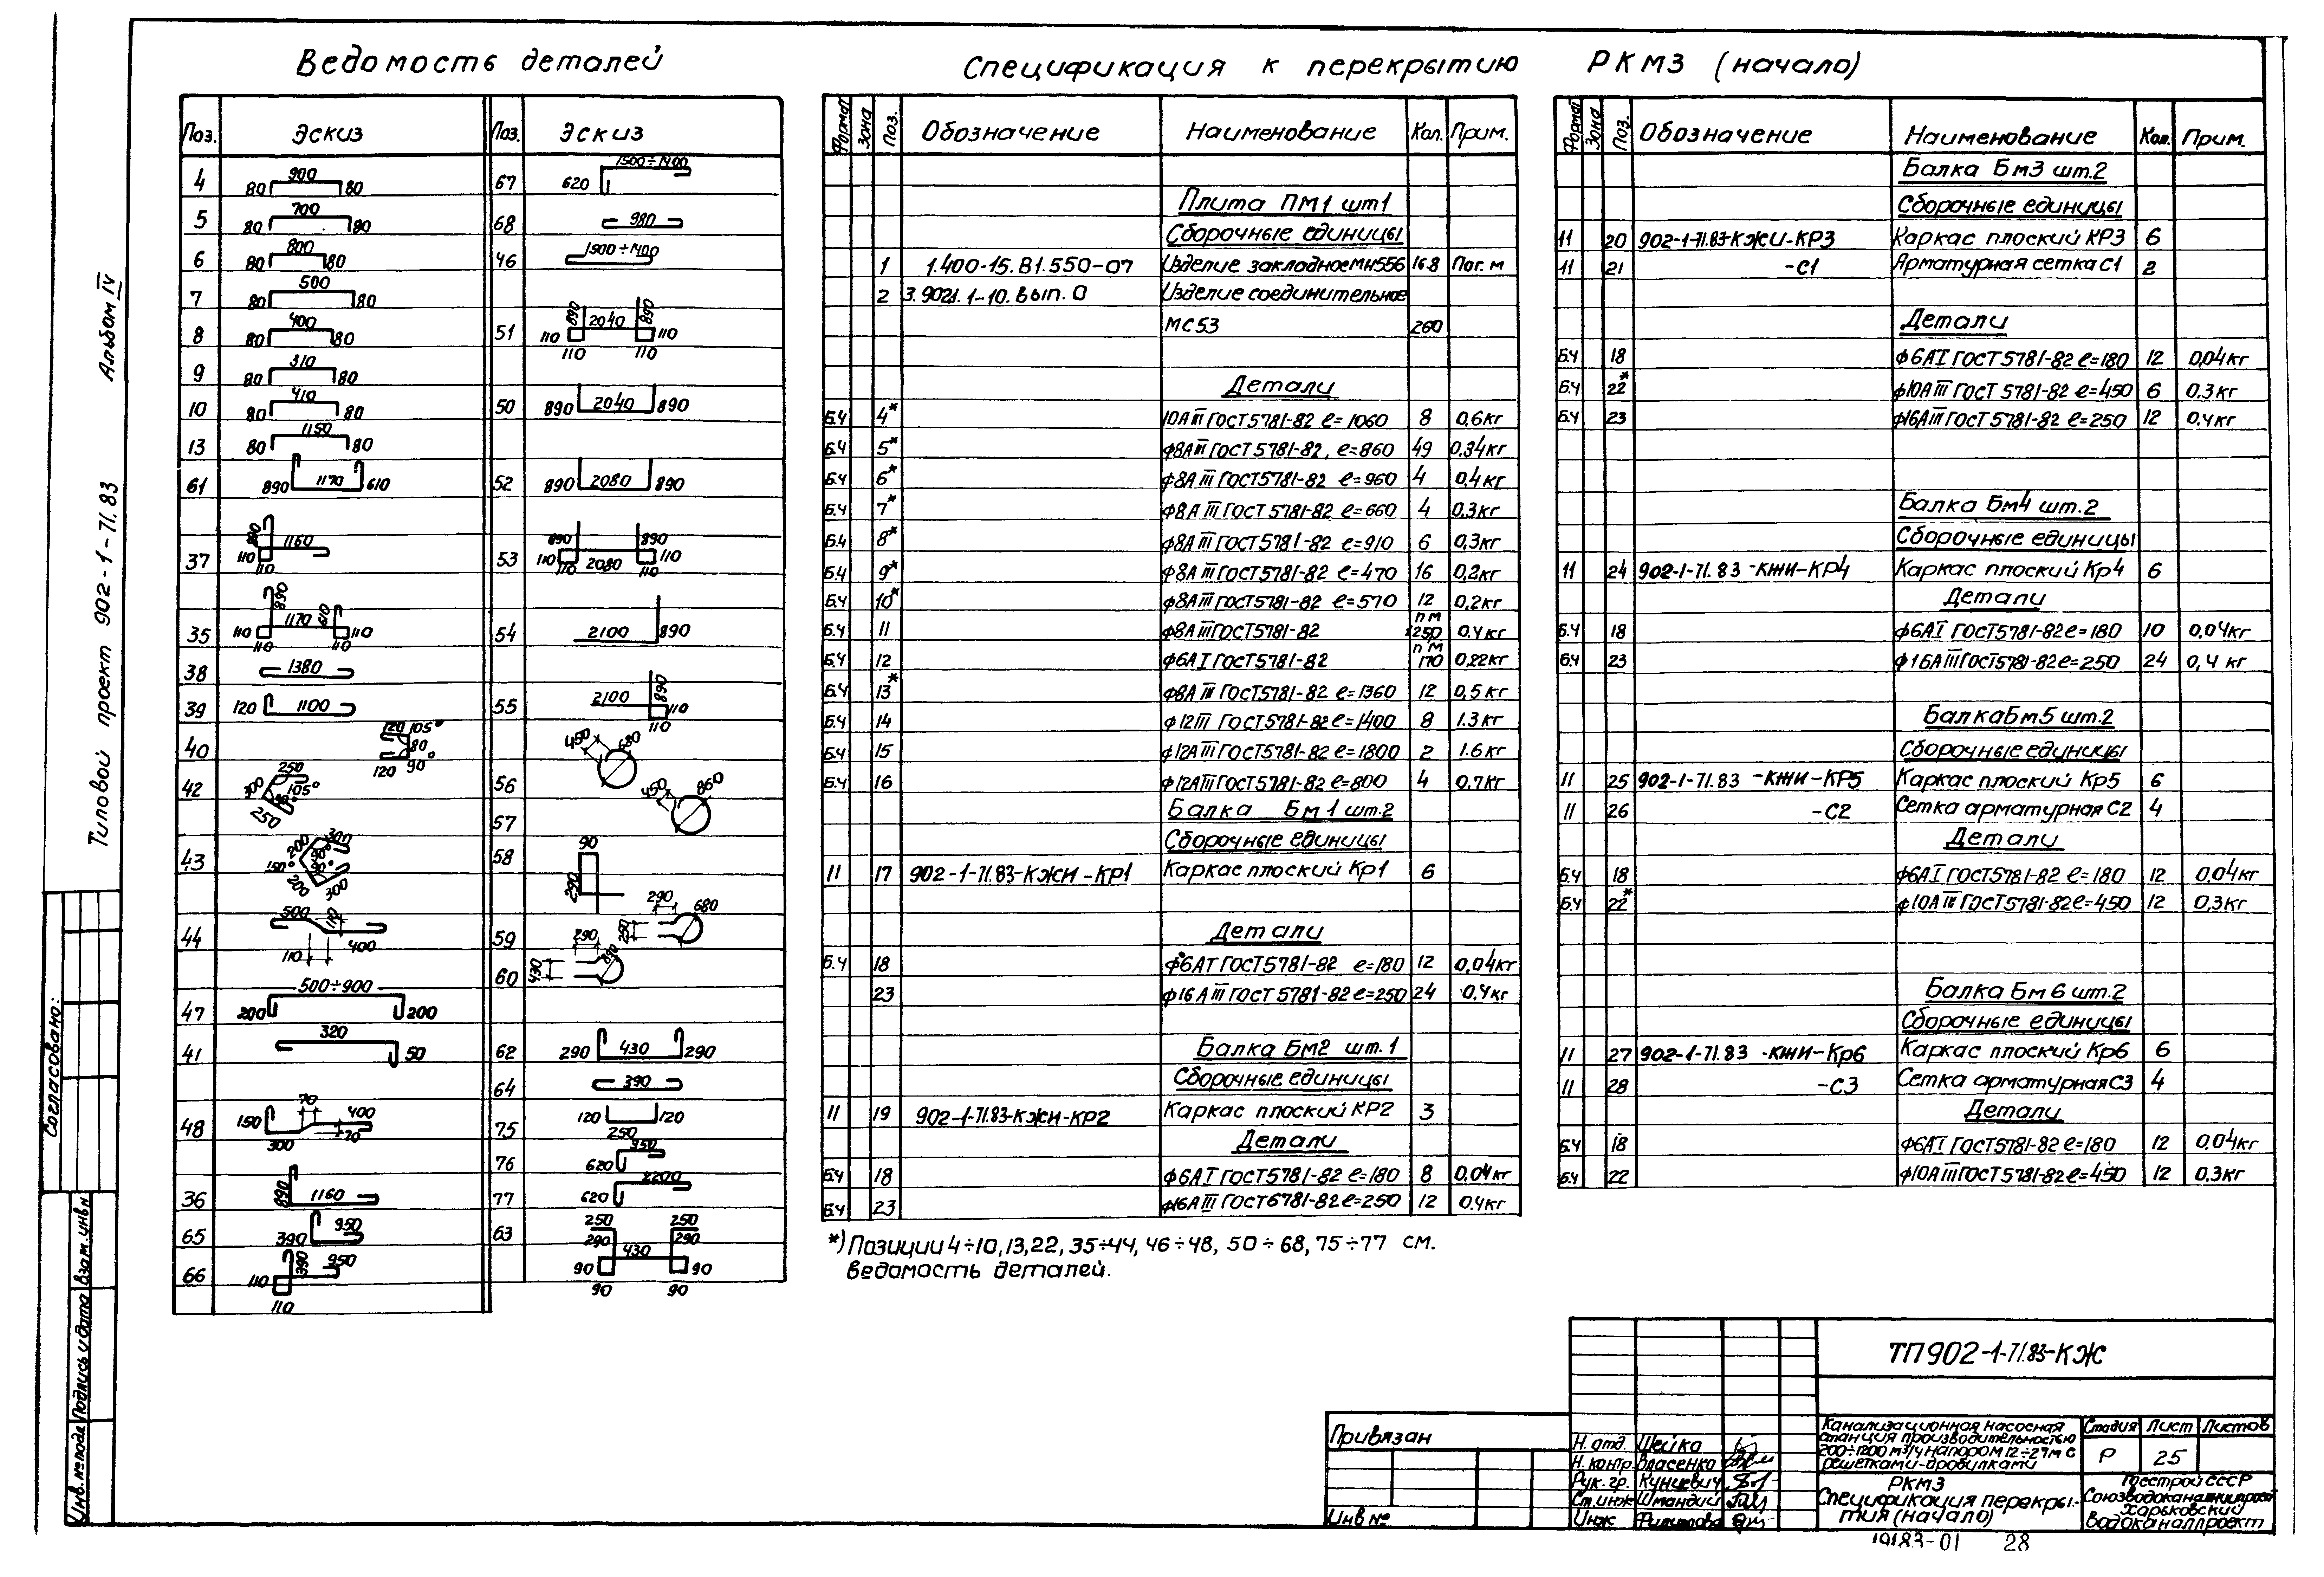 Ведомость деталей
Спецификация к перекрытию РКМ3 (начало)
Типовой проект 902-1-71.83 Альбом IV
Согласовано:
Инв.№подл Подпись и дата Взам.инв№
Поз. Эскиз Поз. Эскиз
4 80 900 80
5 80 700 80
6 80 800 80
7 80 500 80
8 80 400 80
9 80 310 80
10 80 410 80
13 80 1150 80
61 890 1170 610
37 890 1160 110 110
35 890 1170 610 110 110 110 110
38 1380
39 120 1100
40 120 105° 80 120 90°
42 250 300 105° 90° 250
43 200 300 90° 150° 90° 200 300
44 500 110 110 400
47 500÷900 200 200
41 320 50
48 150 70 400 300 70
36 890 1160
65 390 950
66 390 950 110 110
67 620 1500÷1400
68 980
46 1900÷1400
51 890 2040 890 110 110 110 110
50 890 2040 890
52 890 2080 890
53 890 890 110 110 2080 110 110
54 2100 890
55 2100 890 110 110
56 450 680
57 450 860
58 90 290
59 290 680 250
60 290 430
62 290 430 290
64 390
75 120 120 250
76 950 620
77 2200 620
63 250 250 290 290 430 90 90 90 90
Формат Зона Поз. Обозначение Наименование Кол. Прим.
Плита ПМ1 шт1
Сборочные единицы
1 1.400-15.В1.550-07 Изделие закладное МН556 16.8 Пог.м
2 3.902.1-10. вып.0 Изделие соединительное
МС53 260
Детали
Б.Ч 4* 10АIII ГОСТ5781-82 ℓ=1060 8 0,6кг
Б.Ч 5* ф8АIII ГОСТ5781-82, ℓ=860 49 0,34кг
Б.Ч 6* ф8АIII ГОСТ5781-82 ℓ=960 4 0,4кг
Б.Ч 7* ф8АIII ГОСТ5781-82 ℓ=660 4 0,3кг
Б.Ч 8* ф8АIII ГОСТ5781-82 ℓ=910 6 0,3кг
Б.Ч 9* ф8АIII ГОСТ5781-82 ℓ=470 16 0,2кг
Б.Ч 10* ф8АIII ГОСТ5781-82 ℓ=570 12 0,2кг
Б.Ч 11 ф8АIII ГОСТ5781-82 пм 1250 0.4кг
Б.Ч 12 ф6АI ГОСТ5781-82 пм 170 0,22кг
Б.Ч 13* ф8АIII ГОСТ5781-82 ℓ=1360 12 0,5кг
Б.Ч 14 ф12III ГОСТ5781-82 ℓ=1400 8 1.3кг
Б.Ч 15 ф12АIII ГОСТ5781-82 ℓ=1800 2 1.6кг
Б.Ч 16 ф12АIII ГОСТ5781-82 ℓ=800 4 0,7кг
Балка Бм1 шт.2
Сборочные единицы
11 17 902-1-71.83-КЖИ-КР1 Каркас плоский Кр1 6
Детали
Б.Ч 18 ф6АI ГОСТ5781-82 ℓ=180 12 0,04кг
23 ф16АIII ГОСТ5781-82 ℓ=250 24 0,4кг
Балка Бм2 шт.1
Сборочные единицы
11 19 902-1-71.83-КЖИ-КР2 Каркас плоский КР2 3
Детали
Б.Ч 18 ф6АI ГОСТ5781-82 ℓ=180 8 0.04кг
Б.Ч 23 ф16АIII ГОСТ6781-82 ℓ=250 12 0.4кг
*) Позиции 4÷10,13,22, 35÷44, 46÷48, 50÷68, 75÷77 см.
ведомость деталей.
Формат Зона Поз. Обозначение Наименование Кол. Прим.
Балка Бм3 шт.2
Сборочные единицы
11 20 902-1-71.83-КЖИ-КР3 Каркас плоский КР3 6
11 21 -С1 Арматурная сетка С1 2
Детали
Б.Ч 18 ф6АI ГОСТ5781-82 ℓ=180 12 0,04кг
Б.Ч 22* ф10АIII ГОСТ5781-82 ℓ=450 6 0.3кг
Б.Ч 23 ф16АIII ГОСТ5781-82 ℓ=250 12 0.4кг
Балка Бм4 шт.2
Сборочные единицы
11 24 902-1-71.83-КЖИ-КР4 Каркас плоский Кр4 6
Детали
Б.Ч 18 ф6АI ГОСТ5781-82 ℓ=180 10 0,04кг
Б.Ч 23 ф16АIII ГОСТ5781-82 ℓ=250 24 0,4 кг
Балка Бм5 шт.2
Сборочные единицы
11 25 902-1-71.83-КЖИ-КР5 Каркас плоский Кр5 6
11 26 -С2 Сетка арматурная С2 4
Детали
Б.Ч 18 ф6АI ГОСТ5781-82 ℓ=180 12 0,04кг
Б.Ч 22* ф10АIII ГОСТ5781-82 ℓ=450 12 0,3кг
Балка Бм6 шт.2
Сборочные единицы
11 27 902-1-71.83-КЖИ-Кр6 Каркас плоский Кр6 6
11 28 -С3 Сетка арматурная С3 4
Детали
Б.Ч 18 ф6АI ГОСТ5781-82 ℓ=180 12 0.04кг
Б.Ч 22 ф10АIII ГОСТ5781-82 ℓ=450 12 0.3кг
ТП902-1-71.83-КЖ
Привязан
Инв №
Н.отд. Шейко
Н.контр. Власенко
Рук.гр. Кунцевич
Ст.инж Шмандий
Инж Филиппова
Канализационная насосная
станция производительностью
200÷1200 м³/ч напором 12÷27м с
решетками-дробилками
Стадия Лист Листов
Р 25
РКМ3
Спецификация перекры-
тия (начало)
Госстрой СССР
Союзводоканалниипроект
Харьковский
Водоканалпроект
19183-01 28